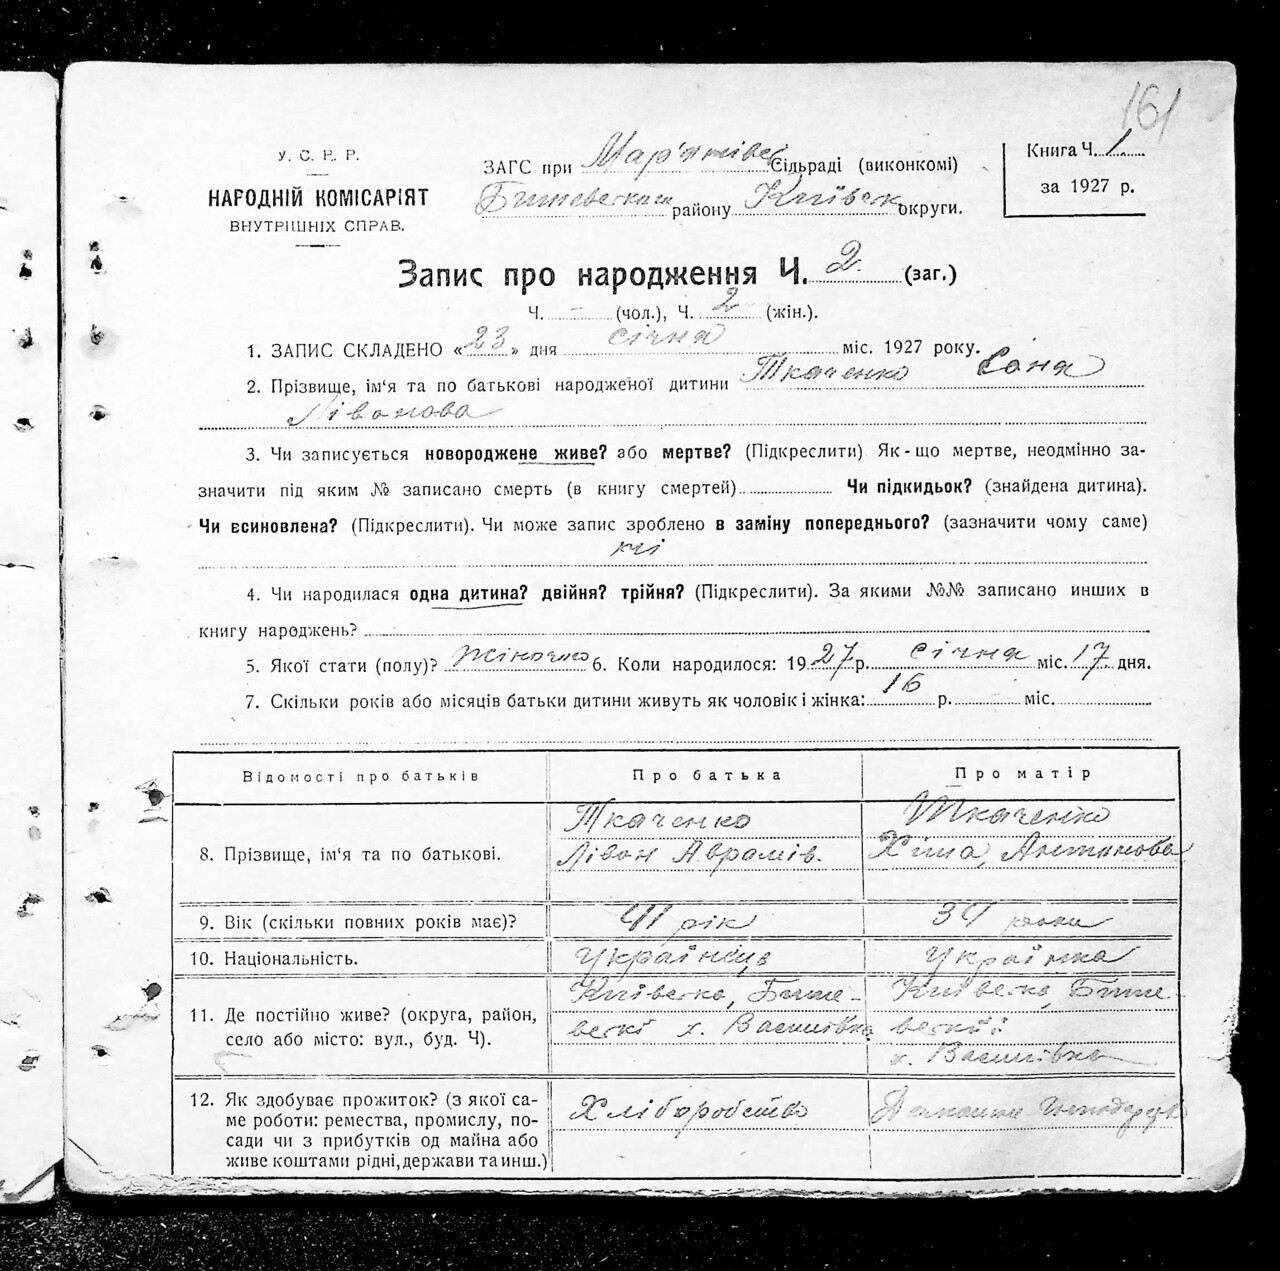 161
У. С. Р. Р.
НАРОДНІЙ КОМІСАРІЯТ
ВНУТРІШНІХ СПРАВ.
ЗАГС при Мар'янівс Сільраді (виконкомі)
Бишевським району Київськ округи.
Книга Ч. 1
за 1927 р.
Запис про народження Ч. 2 (заг.)
Ч. - (чол.), Ч. 2 (жін.).
1. ЗАПИС СКЛАДЕНО «23» дня січня міс. 1927 року.
2. Прізвище, ім'я та по батькові народженої дитини Ткаченко Соня
Лівонова
3. Чи записується новороджене живе? або мертве? (Підкреслити) Як-що мертве, неодмінно за-
значити під яким № записано смерть (в книгу смертей) Чи підкидьок? (знайдена дитина).
Чи всиновлена? (Підкреслити). Чи може запис зроблено в заміну попереднього? (зазначити чому саме)
ні
4. Чи народилася одна дитина? двійня? трійня? (Підкреслити). За якими №№ записано инших в
книгу народжень?
5. Якої стати (полу)? жіночно 6. Коли народилося: 1927 р. січня міс. 17 дня.
7. Скільки років або місяців батьки дитини живуть як чоловік і жінка: 16 р. міс.
Відомості про батьків Про батька Про матір
8. Прізвище, ім'я та по батькові.
Ткаченко
Лівон Аврамів.
Ткаченко
Хима, Антинова
9. Вік (скільки повних років має)? 41 рік 34 роки
10. Національність. Українець Українка
11. Де постійно живе? (округа, район,
село або місто: вул., буд. Ч).
Київська, Бише-
вскі х. Василівка
Київська, Бише-
вскій
х. Василівка
12. Як здобуває прожиток? (з якої са-
ме роботи: ремества, промислу, по-
сади чи з прибутків од майна або
живе коштами рідні, держави та инш.)
Хліборобство
Домашнє